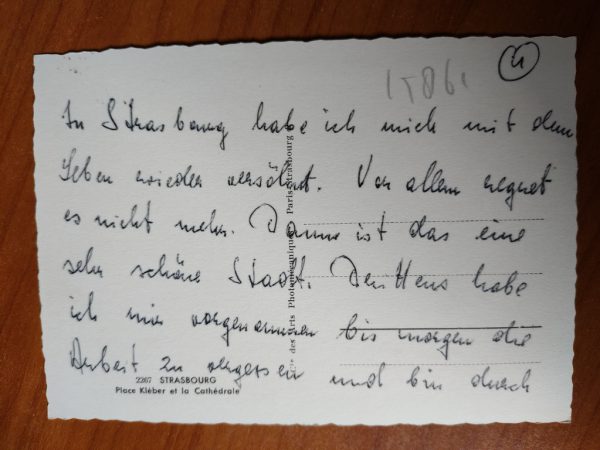 4
1586,
In Strasbourg habe ich mich mit dem
Leben wieder versöhnt. Vor allem regnet
es nicht mehr. Dann ist das eine
sehr schöne Stadt. habe
ich mir vorgenommen bis morgen die
Arbeit zu vergessen und bin durch
des Arts Photomécaniques Paris-Strasbourg
2267 STRASBOURG
Place Kléber et la Cathédrale